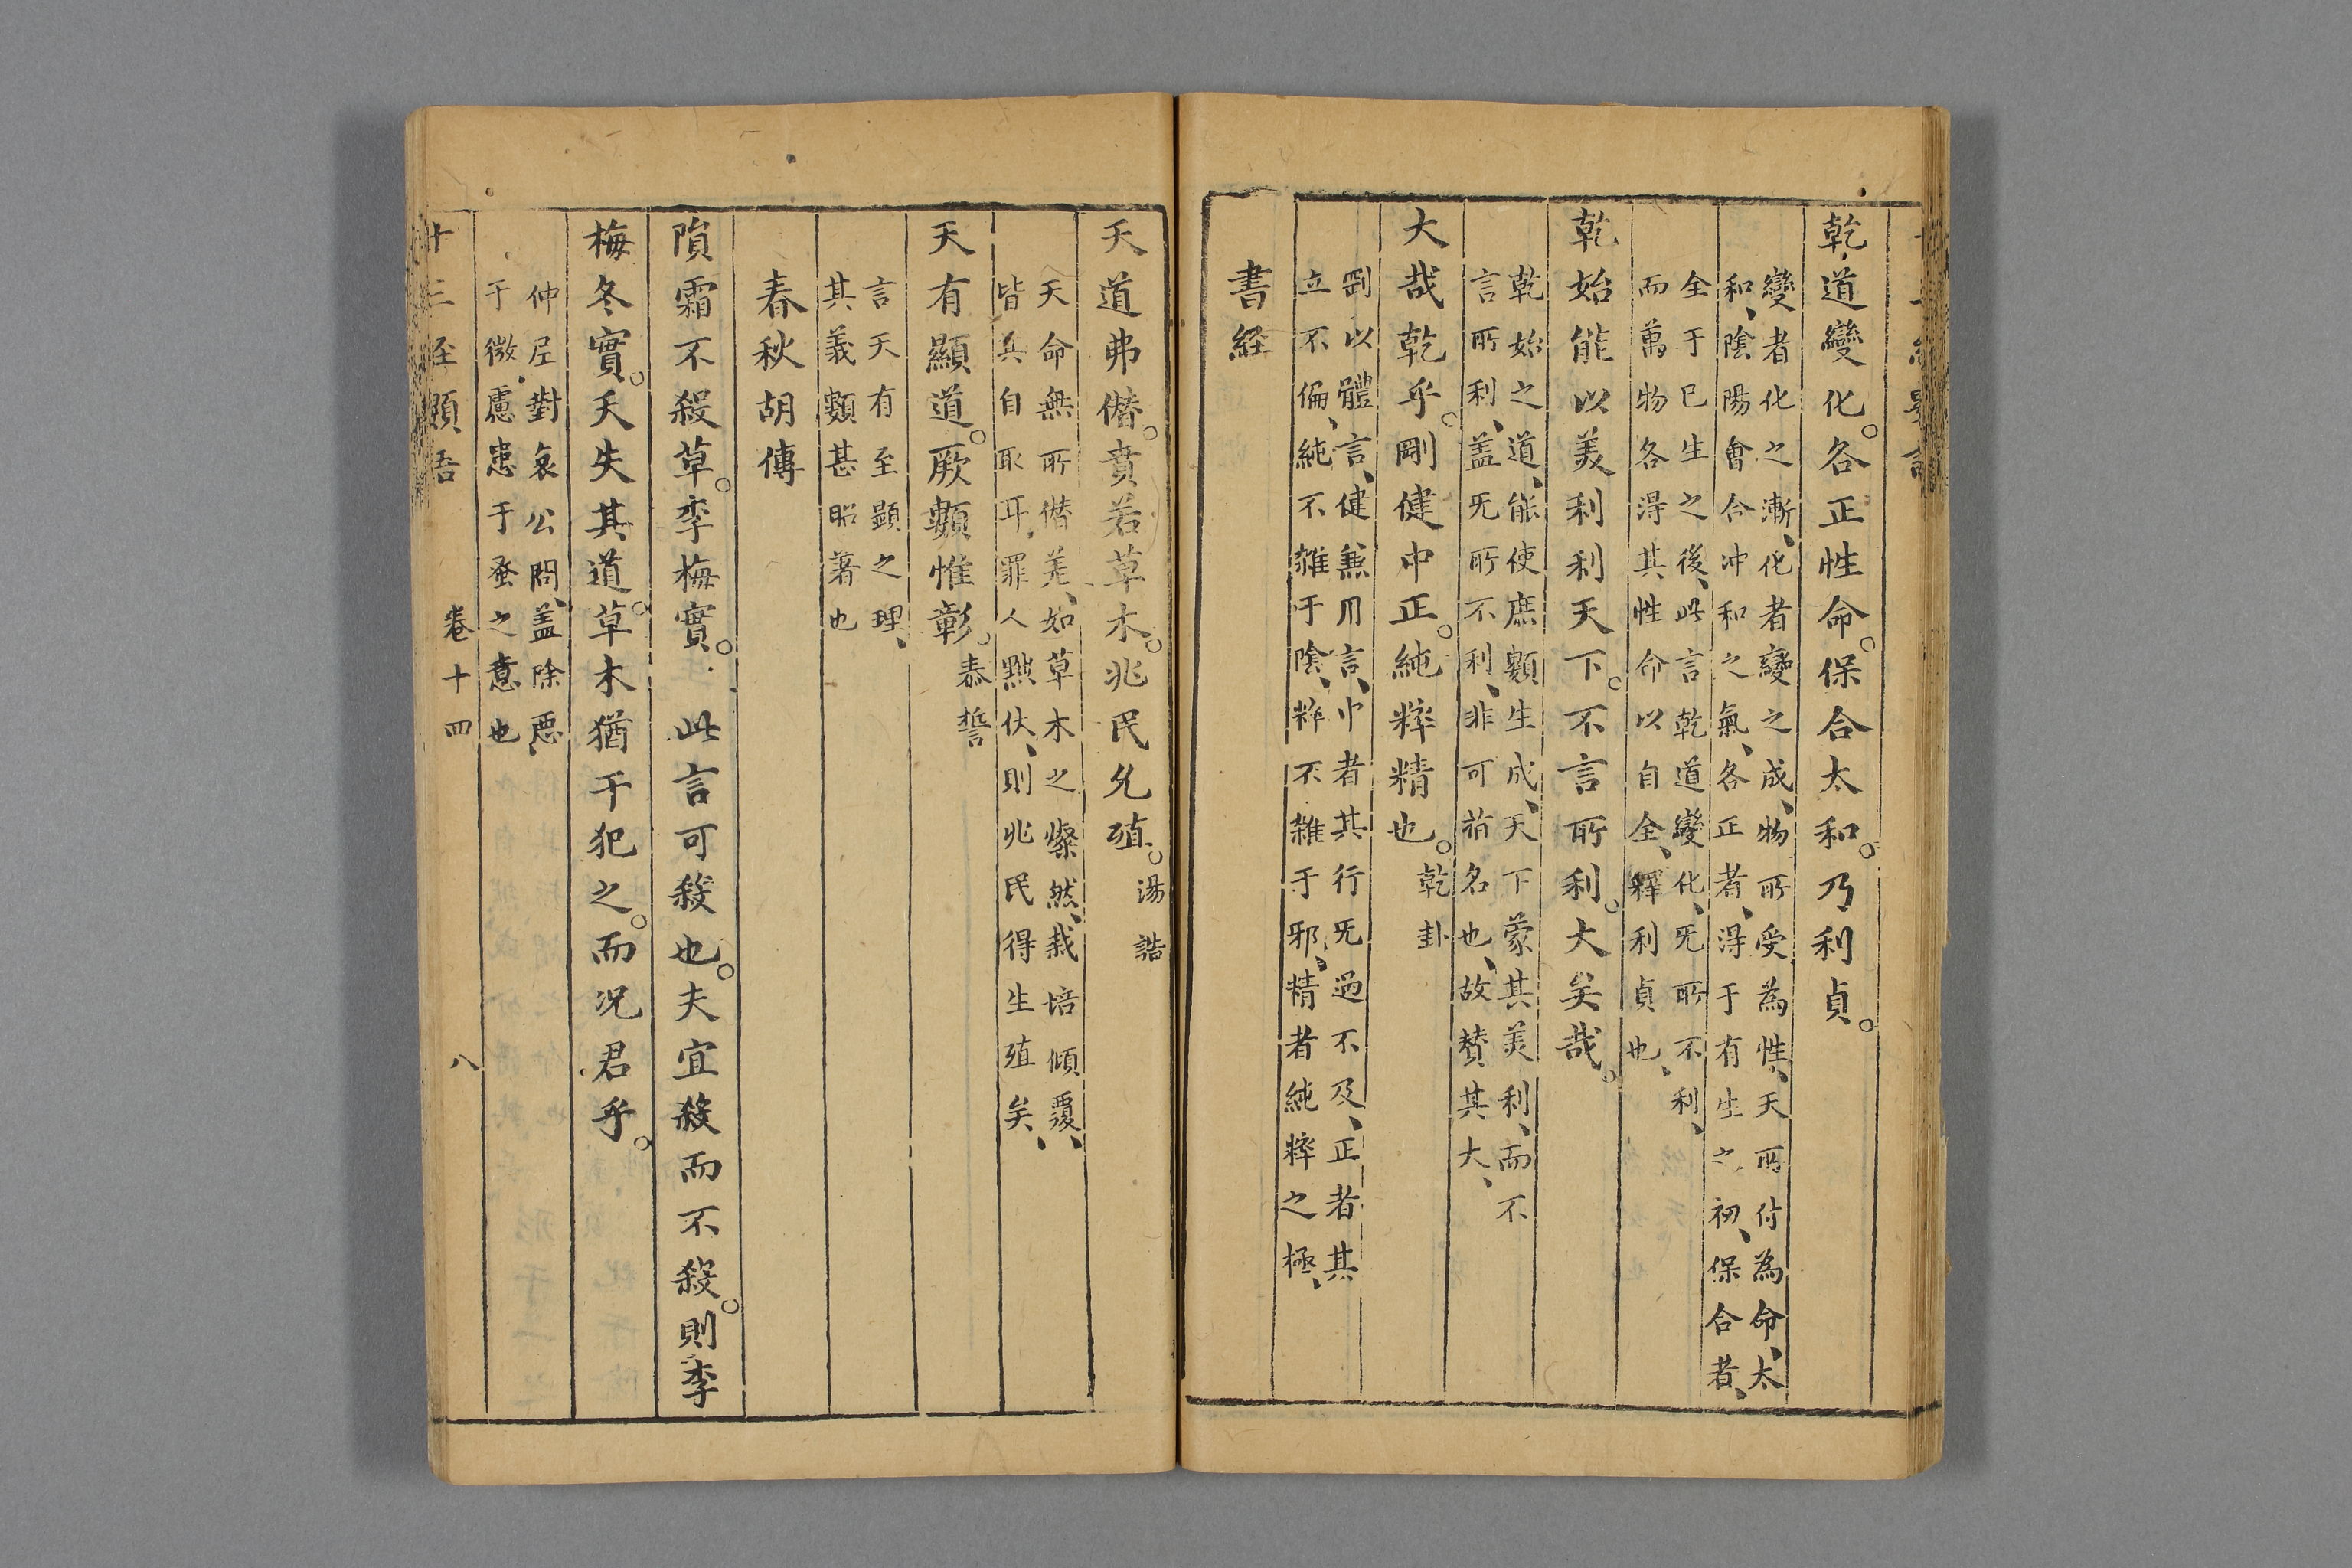 乾道變化。各正性命。保合太和。乃利貞。
變者化之漸、化者變之成、物所受為性、天所付為命、太
和、陰陽會合冲和之氣、各正者、得于有生之初、保合者、
全于已生之後、此言乾道變化、旡所不利、
而萬物各得其性命以自全、釋利貞也、
乾始能以美利利天下。不言所利。大矣哉。
乾始之道、能使庶類生成、天下蒙其美利、而不
言所利、盖旡所不利、非可指名也、故賛其大、
大哉乾乎。剛健中正。純粹精也。乾卦
剛以體言、健兼用言、中者其行旡過不及、正者其
立不偏、純不雜于陰、粹不雜于邪、精者純粹之極、
書経
天道弗僭。賁若草木。兆民允殖。湯誥
天命無所僭差、如草木之燦然、栽培傾覆、
皆其自取耳、罪人黜伏、則兆民得生殖矣、
天有顯道。厥類惟彰。泰誓
言天有至顕之理、
其義類甚昭著也
春秋胡傳
隕霜不殺草。李梅實。此言可殺也。夫宜殺而不殺。則李
梅冬實。天失其道。草木猶干犯之。而况君乎。
仲尼對哀公問、盖除惡
于微、慮患于蚤之意也
卷十四
八